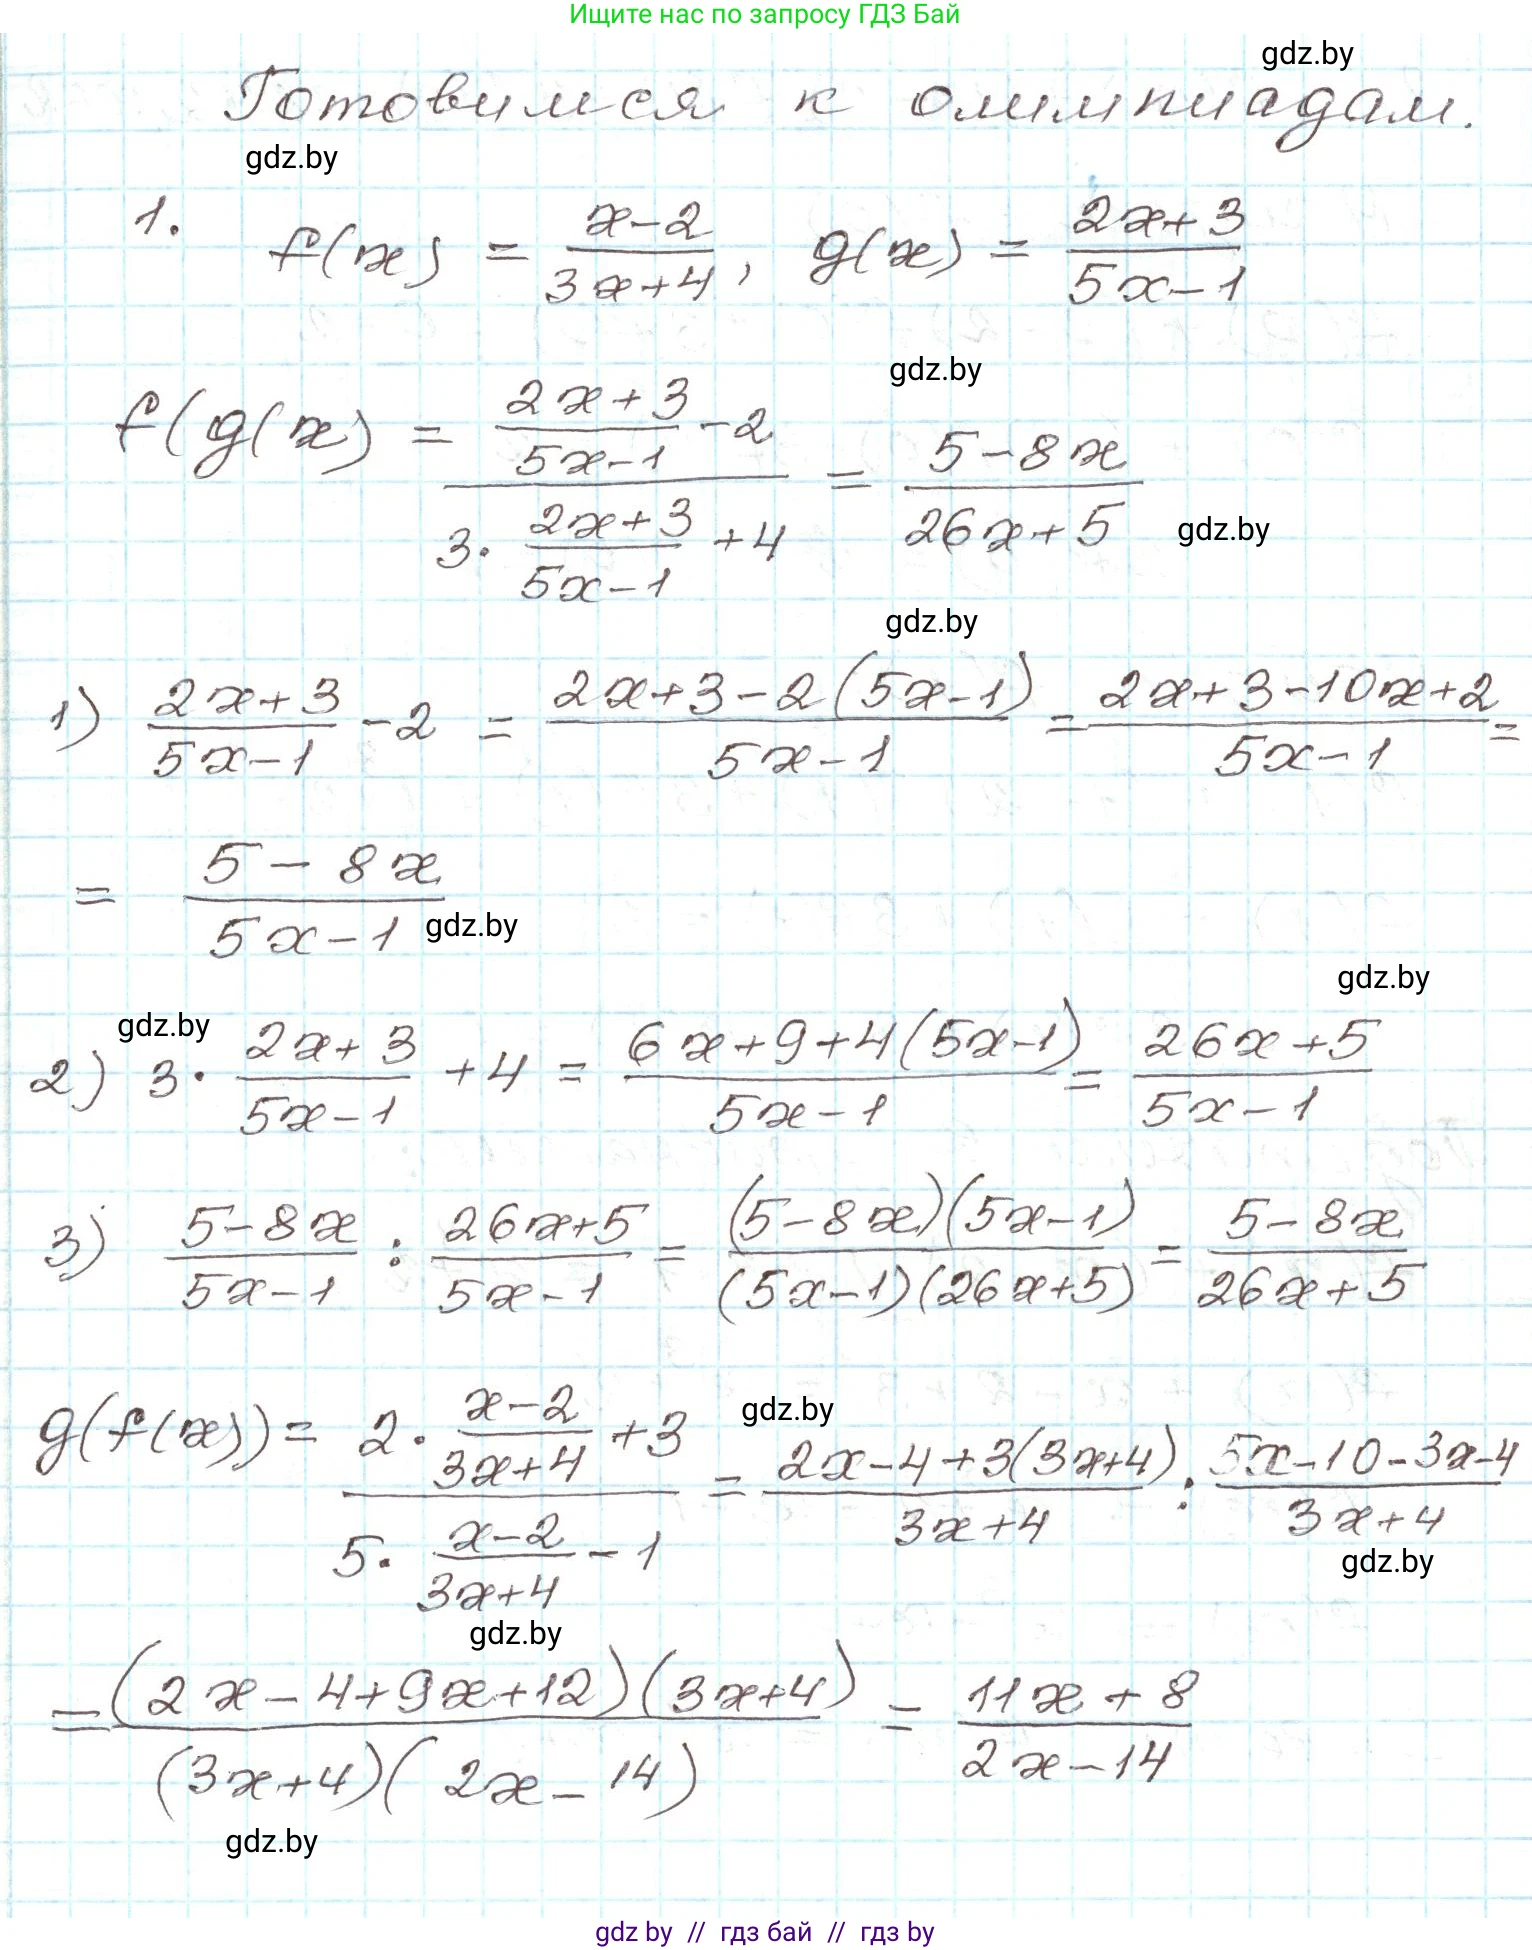 Ищите нас по запросу ГДЗ Бай
gdz.by
Готовимся к олимпиадам.
gdz.by
1. f(x) = (x-2)/(3x+4), g(x) = (2x+3)/(5x-1)
gdz.by
f(g(x) = ((2x+3)/(5x-1) - 2)/(3·(2x+3)/(5x-1) + 4) = (5-8x)/(26x+5)
gdz.by
gdz.by
1) (2x+3)/(5x-1) - 2 = (2x+3-2(5x-1))/(5x-1) = (2x+3-10x+2)/(5x-1) =
= (5-8x)/(5x-1)
gdz.by
gdz.by
gdz.by
2) 3·(2x+3)/(5x-1) + 4 = (6x+9+4(5x-1))/(5x-1) = (26x+5)/(5x-1)
3) (5-8x)/(5x-1) : (26x+5)/(5x-1) = ((5-8x)(5x-1))/((5x-1)(26x+5)) = (5-8x)/(26x+5)
gdz.by
g(f(x)) = (2·(x-2)/(3x+4) + 3)/(5·(x-2)/(3x+4) - 1) = (2x-4+3(3x+4))/(3x+4) : (5x-10-3x-4)/(3x+4)
gdz.by
gdz.by
= ((2x-4+9x+12)(3x+4))/((3x+4)(2x-14)) = (11x+8)/(2x-14)
gdz.by
gdz by // гдз бай // гдз by